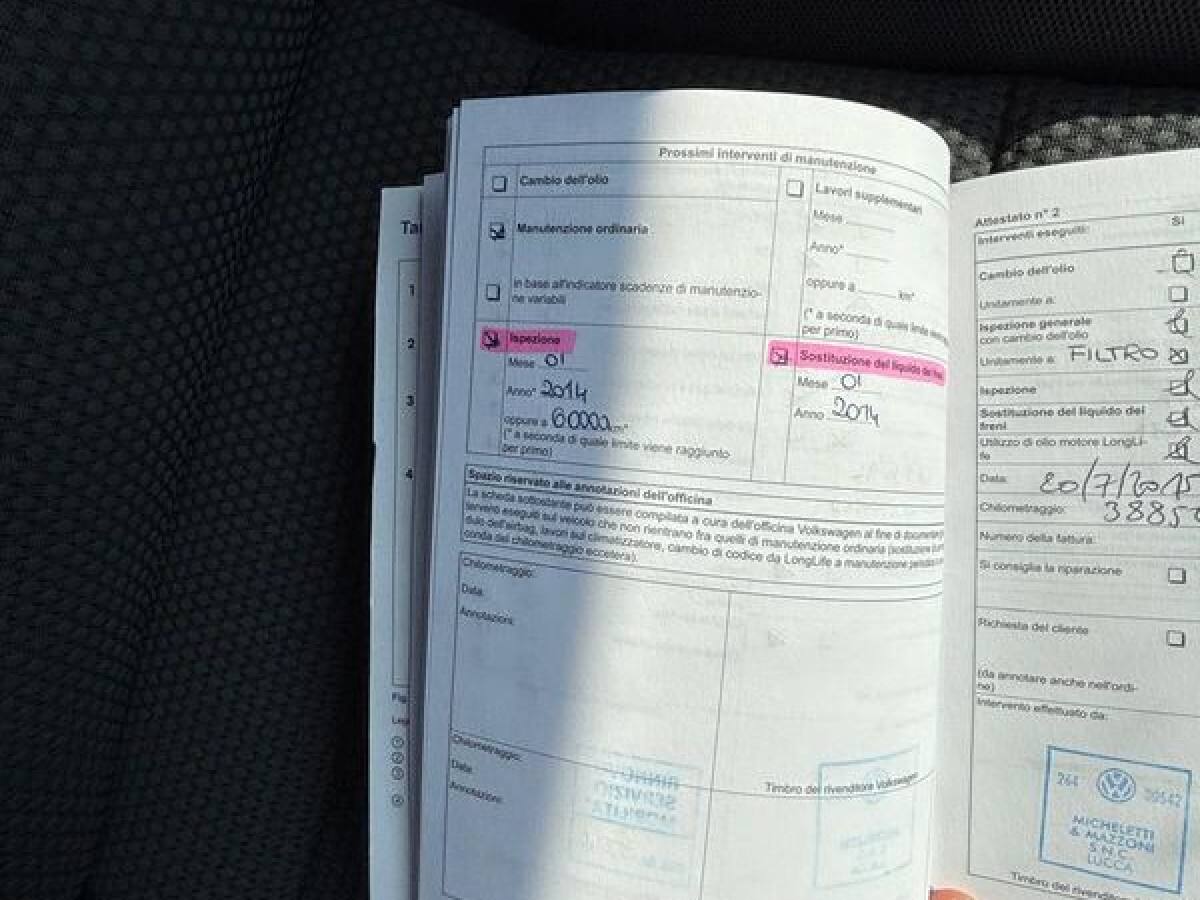 Prossimi interventi di manutenzione
Cambio dell'olio
Manutenzione ordinaria
in base all'indicatore scadenze di manutenzio-
ne variabili
Ispezione
Mese 01
Anno* 2014
oppure a 60000 km*
(* a seconda di quale limite viene raggiunto
per primo)
Lavori supplementari
Mese
Anno*
oppure a km*
(* a seconda di quale limite
per primo)
Sostituzione del liquido dei
Mese 01
Anno 2014
Spazio riservato alle annotazioni dell'officina
La scheda sottostante può essere compilata a cura dell'officina Volkswagen al fine di documentare
terventi eseguiti sul veicolo che non rientrano fra quelli di manutenzione ordinaria (sostituzione
dulo dell'airbag, lavori sul climatizzatore, cambio di codice da LongLife a manutenzione
conda del chilometraggio eccetera).
Chilometraggio:
Data:
Annotazioni:
Chilometraggio:
Data:
Annotazioni:
Timbro del rivenditore Volkswagen
Ta
1
2
3
4
Fig
Attestato n° 2
Interventi eseguiti: Sì
Cambio dell'olio
Unitamente a:
Ispezione generale
con cambio dell'olio
Unitamente a: FILTRO
Ispezione
Sostituzione del liquido dei
freni
Utilizzo di olio motore LongLi-
fe
Data: 20/7/2015
Chilometraggio: 38850
Numero della fattura:
Si consiglia la riparazione
Richiesta del cliente
(da annotare anche nell'ordi-
ne)
Intervento effettuato da:
264 09542
MICHELETTI
& MAZZONI
S.N.C.
LUCCA
Timbro del rivenditore